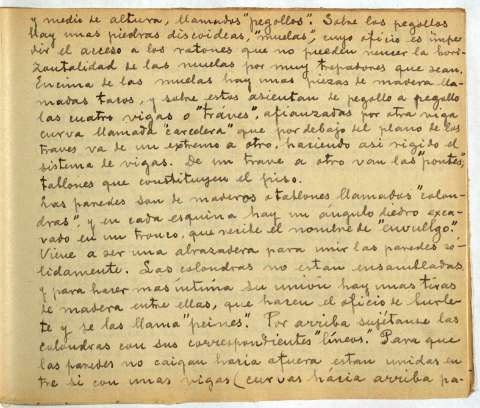 y medio de altura, llamados "pegollos". Sobre los pegollos
hay unas piedras discoideas, "muelas", cuyo oficio es impe-
dir el acceso a los ratones que no pueden vencer la hori-
zontalidad de las muelas por muy trepatones que sean.
Encima de las muelas hay unas piezas de madera lla-
madas tacos, y sobre estos asientan de pegollo a pegollo
las cuatro vigas o "traves", afianzadas por otra viga
curva llamada "carcelera" que por debajo del plano de los
traves va de un extremo a otro, haciendo asi rigido el
sistema de vigas. De un trave a otro van las "pontes",
tablones que constituyen el piso.
Las paredes son de maderos o tablones llamados "colon-
dras", y en cada esquina hay un ángulo diedro exca-
vado en un tronco, que recibe el nombre de "envuelgo".
Viene a ser una abrazadera para unir las paredes só-
lidamente. Las colondras no estan ensambladas
y para hacer mas intima su unión hay unas tiras
de madera entre ellas, que hacen el oficio de burle-
te y se las llama "peines". Por arriba sujétanse las
colondras con sus correspondientes "líneos". Para que
las paredes no caigan hacia afuera estan unidas en
tre si con unas vigas (curvas hácia arriba pa-